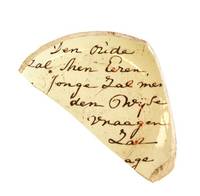 Den Oude
Zal Men Eeren,
Jonge Zal men
den Wyse
Vraagen
Zal
age